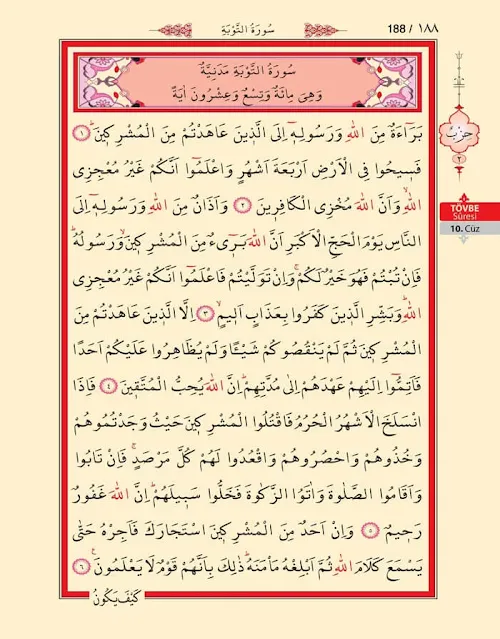 سُورَةُ التَّوْبَةِ
188 / ١٨٨
سُورَةُ التَّوْبَةِ مَدَنِيَّةٌ
وَهِيَ مِائَةٌ وَتِسْعٌ وَعِشْرُونَ اٰيَةً
بَرَٓاءَةٌ مِنَ اللّٰهِ وَرَسُولِه۪ٓ اِلَى الَّذ۪ينَ عَاهَدْتُمْ مِنَ الْمُشْرِك۪ينَۜ ﴿١﴾
فَس۪يحُوا فِي الْاَرْضِ اَرْبَعَةَ اَشْهُرٍ وَاعْلَمُٓوا اَنَّكُمْ غَيْرُ مُعْجِزِي
اللّٰهِۙ وَاَنَّ اللّٰهَ مُخْزِي الْكَافِر۪ينَ ﴿٢﴾ وَاَذَانٌ مِنَ اللّٰهِ وَرَسُولِه۪ٓ اِلَى
النَّاسِ يَوْمَ الْحَجِّ الْاَكْبَرِ اَنَّ اللّٰهَ بَر۪ٓيءٌ مِنَ الْمُشْرِك۪ينَۙ وَرَسُولُهُۜ
فَاِنْ تُبْتُمْ فَهُوَ خَيْرٌ لَكُمْۚ وَاِنْ تَوَلَّيْتُمْ فَاعْلَمُٓوا اَنَّكُمْ غَيْرُ مُعْجِزِي
اللّٰهِۜ وَبَشِّرِ الَّذ۪ينَ كَفَرُوا بِعَذَابٍ اَل۪يمٍۙ ﴿٣﴾ اِلَّا الَّذ۪ينَ عَاهَدْتُمْ مِنَ
الْمُشْرِك۪ينَ ثُمَّ لَمْ يَنْقُصُوكُمْ شَيْـًٔا وَلَمْ يُظَاهِرُوا عَلَيْكُمْ اَحَدًا
فَاَتِمُّٓوا اِلَيْهِمْ عَهْدَهُمْ اِلٰى مُدَّتِهِمْۜ اِنَّ اللّٰهَ يُحِبُّ الْمُتَّق۪ينَ ﴿٤﴾ فَاِذَا
انْسَلَخَ الْاَشْهُرُ الْحُرُمُ فَاقْتُلُوا الْمُشْرِك۪ينَ حَيْثُ وَجَدْتُمُوهُمْ
وَخُذُوهُمْ وَاحْصُرُوهُمْ وَاقْعُدُوا لَهُمْ كُلَّ مَرْصَدٍۚ فَاِنْ تَابُوا
وَاَقَامُوا الصَّلٰوةَ وَاٰتَوُا الزَّكٰوةَ فَخَلُّوا سَب۪يلَهُمْۜ اِنَّ اللّٰهَ غَفُورٌ
رَح۪يمٌ ﴿٥﴾ وَاِنْ اَحَدٌ مِنَ الْمُشْرِك۪ينَ اسْتَجَارَكَ فَاَجِرْهُ حَتّٰى
يَسْمَعَ كَلَامَ اللّٰهِ ثُمَّ اَبْلِغْهُ مَأْمَنَهُۜ ذٰلِكَ بِاَنَّهُمْ قَوْمٌ لَا يَعْلَمُونَ۟ ﴿٦﴾
كَيْفَ يَكُونُ
حِزْبٌ
٢
TÖVBE
Sûresi
10. Cüz